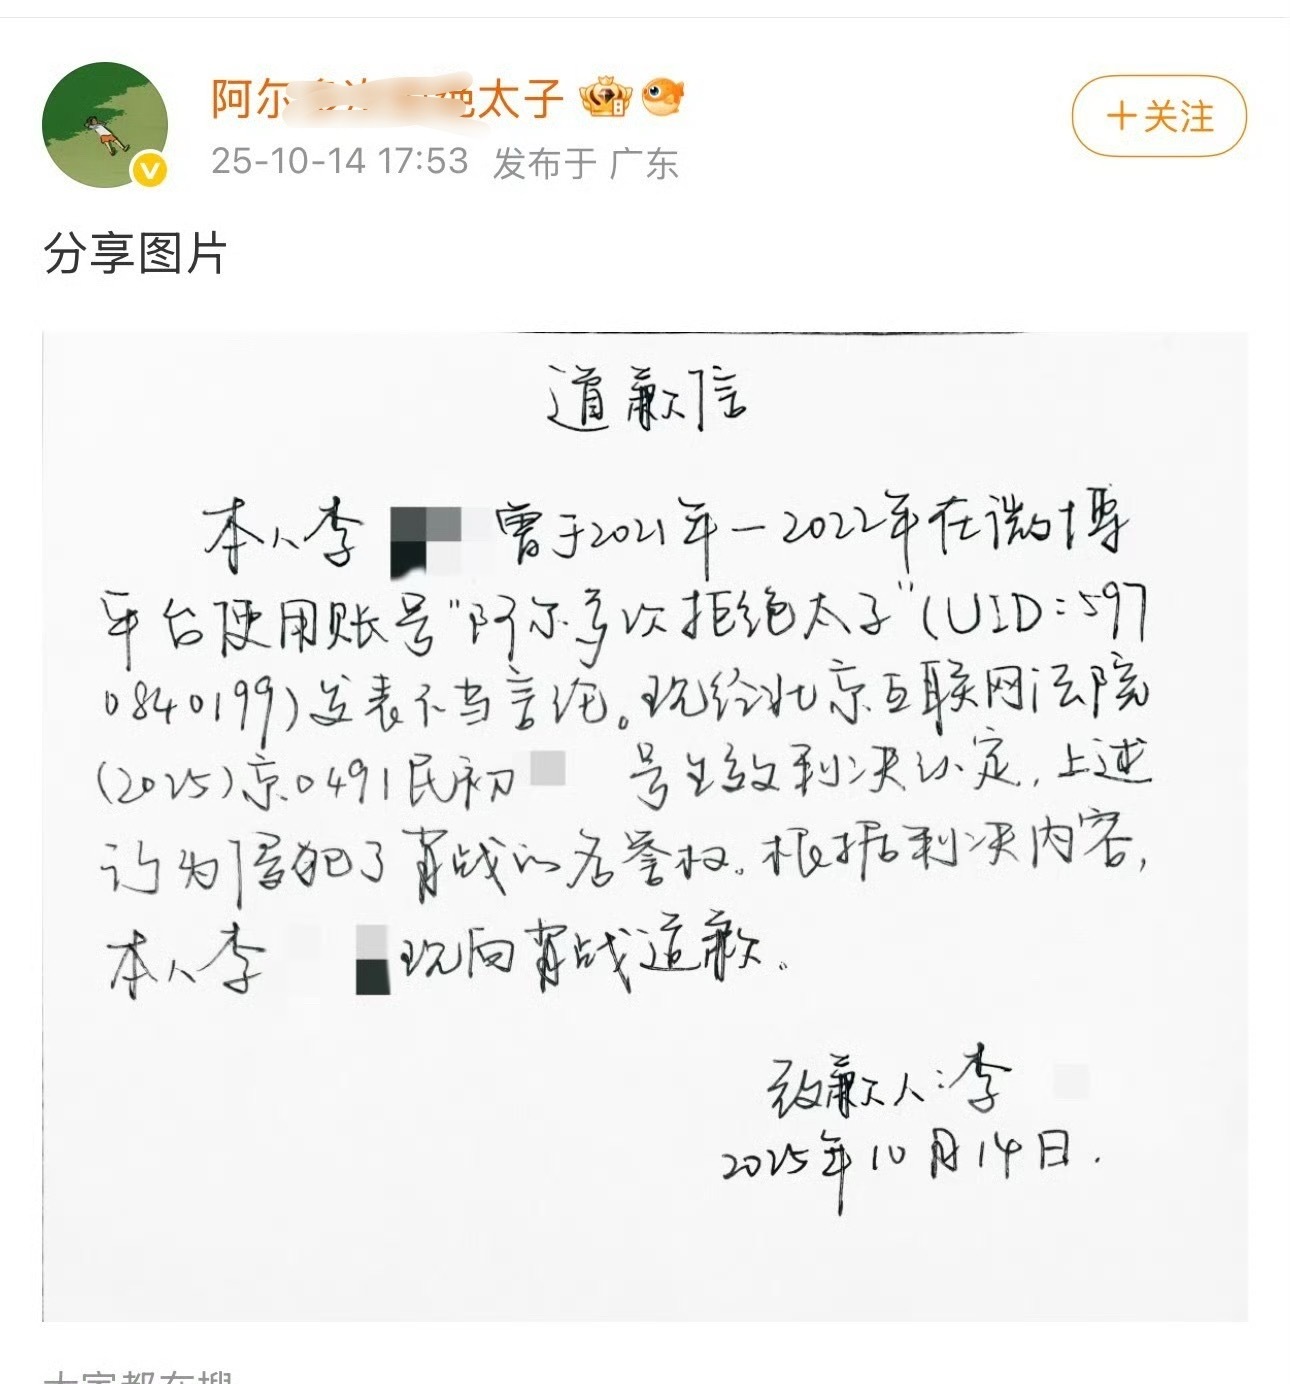 阿尔 太子
25-10-14 17:53 发布于 广东
+关注
分享图片
道歉信
本人李 曾于2021年-2022年在微博
平台使用账号"阿尔多次拒绝太子"(UID:597
0840199)发表不当言论。现经北京互联网法院
(2025)京0491民初 号生效判决认定,上述
行为侵犯了肖战的名誉权。根据判决内容,
本人李 现向肖战道歉。
致歉人:李
2025年10月14日.
大家都在搜